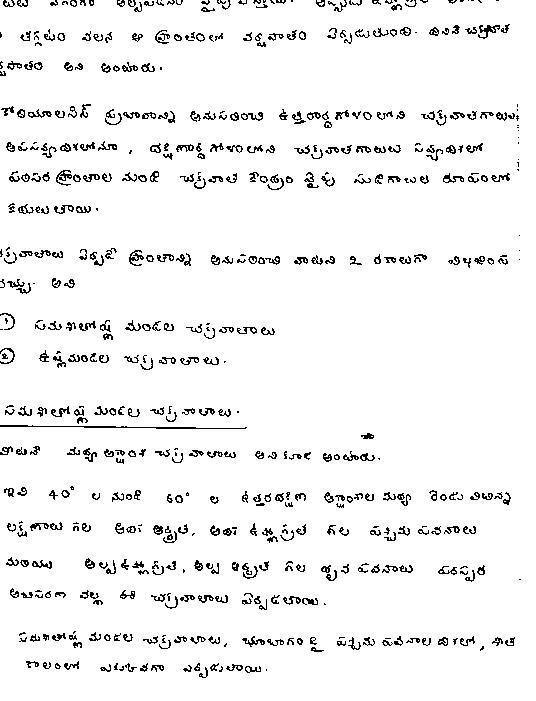 తగ్గటం వలన ఆ ప్రాంతంలో వర్షపాతం ఏర్పడుతుంది. దీనినే చక్రవాత
వర్షపాతం అని అంటారు.
కోరియాలసిస్ ప్రభావాన్ని అనుసరించి ఉత్తరార్ధగోళంలోని చక్రవాతగాలులు
అపసవ్యదిశలోనూ, దక్షిణార్ధగోళంలోని చక్రవాతగాలులు సవ్యదిశలో
పరిసర ప్రాంతాల నుండి చక్రవాత కేంద్రం వైపు సుడిగాలుల రూపంలో
కదులుతాయి.
చక్రవాతాలు ఏర్పడే ప్రాంతాన్ని అనుసరించి వాటిని 2 రకాలుగా విభజించ
వచ్చు. అవి
① సమశీతోష్ణ మండల చక్రవాతాలు
② ఉష్ణమండల చక్రవాతాలు.
సమశీతోష్ణ మండల చక్రవాతాలు.
వీటినే మధ్య అక్షాంశ చక్రవాతాలు అని కూడ అంటారు.
ఇవి 40° ల నుండి 60° ల ఉత్తరదక్షిణ అక్షాంశాల మధ్య రెండు విభిన్న
లక్షణాలు గల అతి ఆర్ద్రత, అతి ఉష్ణోగ్రత గల పశ్చిమ పవనాలు
మరియు అల్పఉష్ణోగ్రత, అల్ప ఆర్ద్రత గల ధృవ పవనాలు పరస్పర
అభిసరణ వల్ల ఈ చక్రవాతాలు ఏర్పడతాయి.
సమశీతోష్ణ మండల చక్రవాతాలు, భూభాగంపై పశ్చిమ పవనాల దిశలో, శీత
కాలంలో ఎక్కువగా ఏర్పడుతాయి.